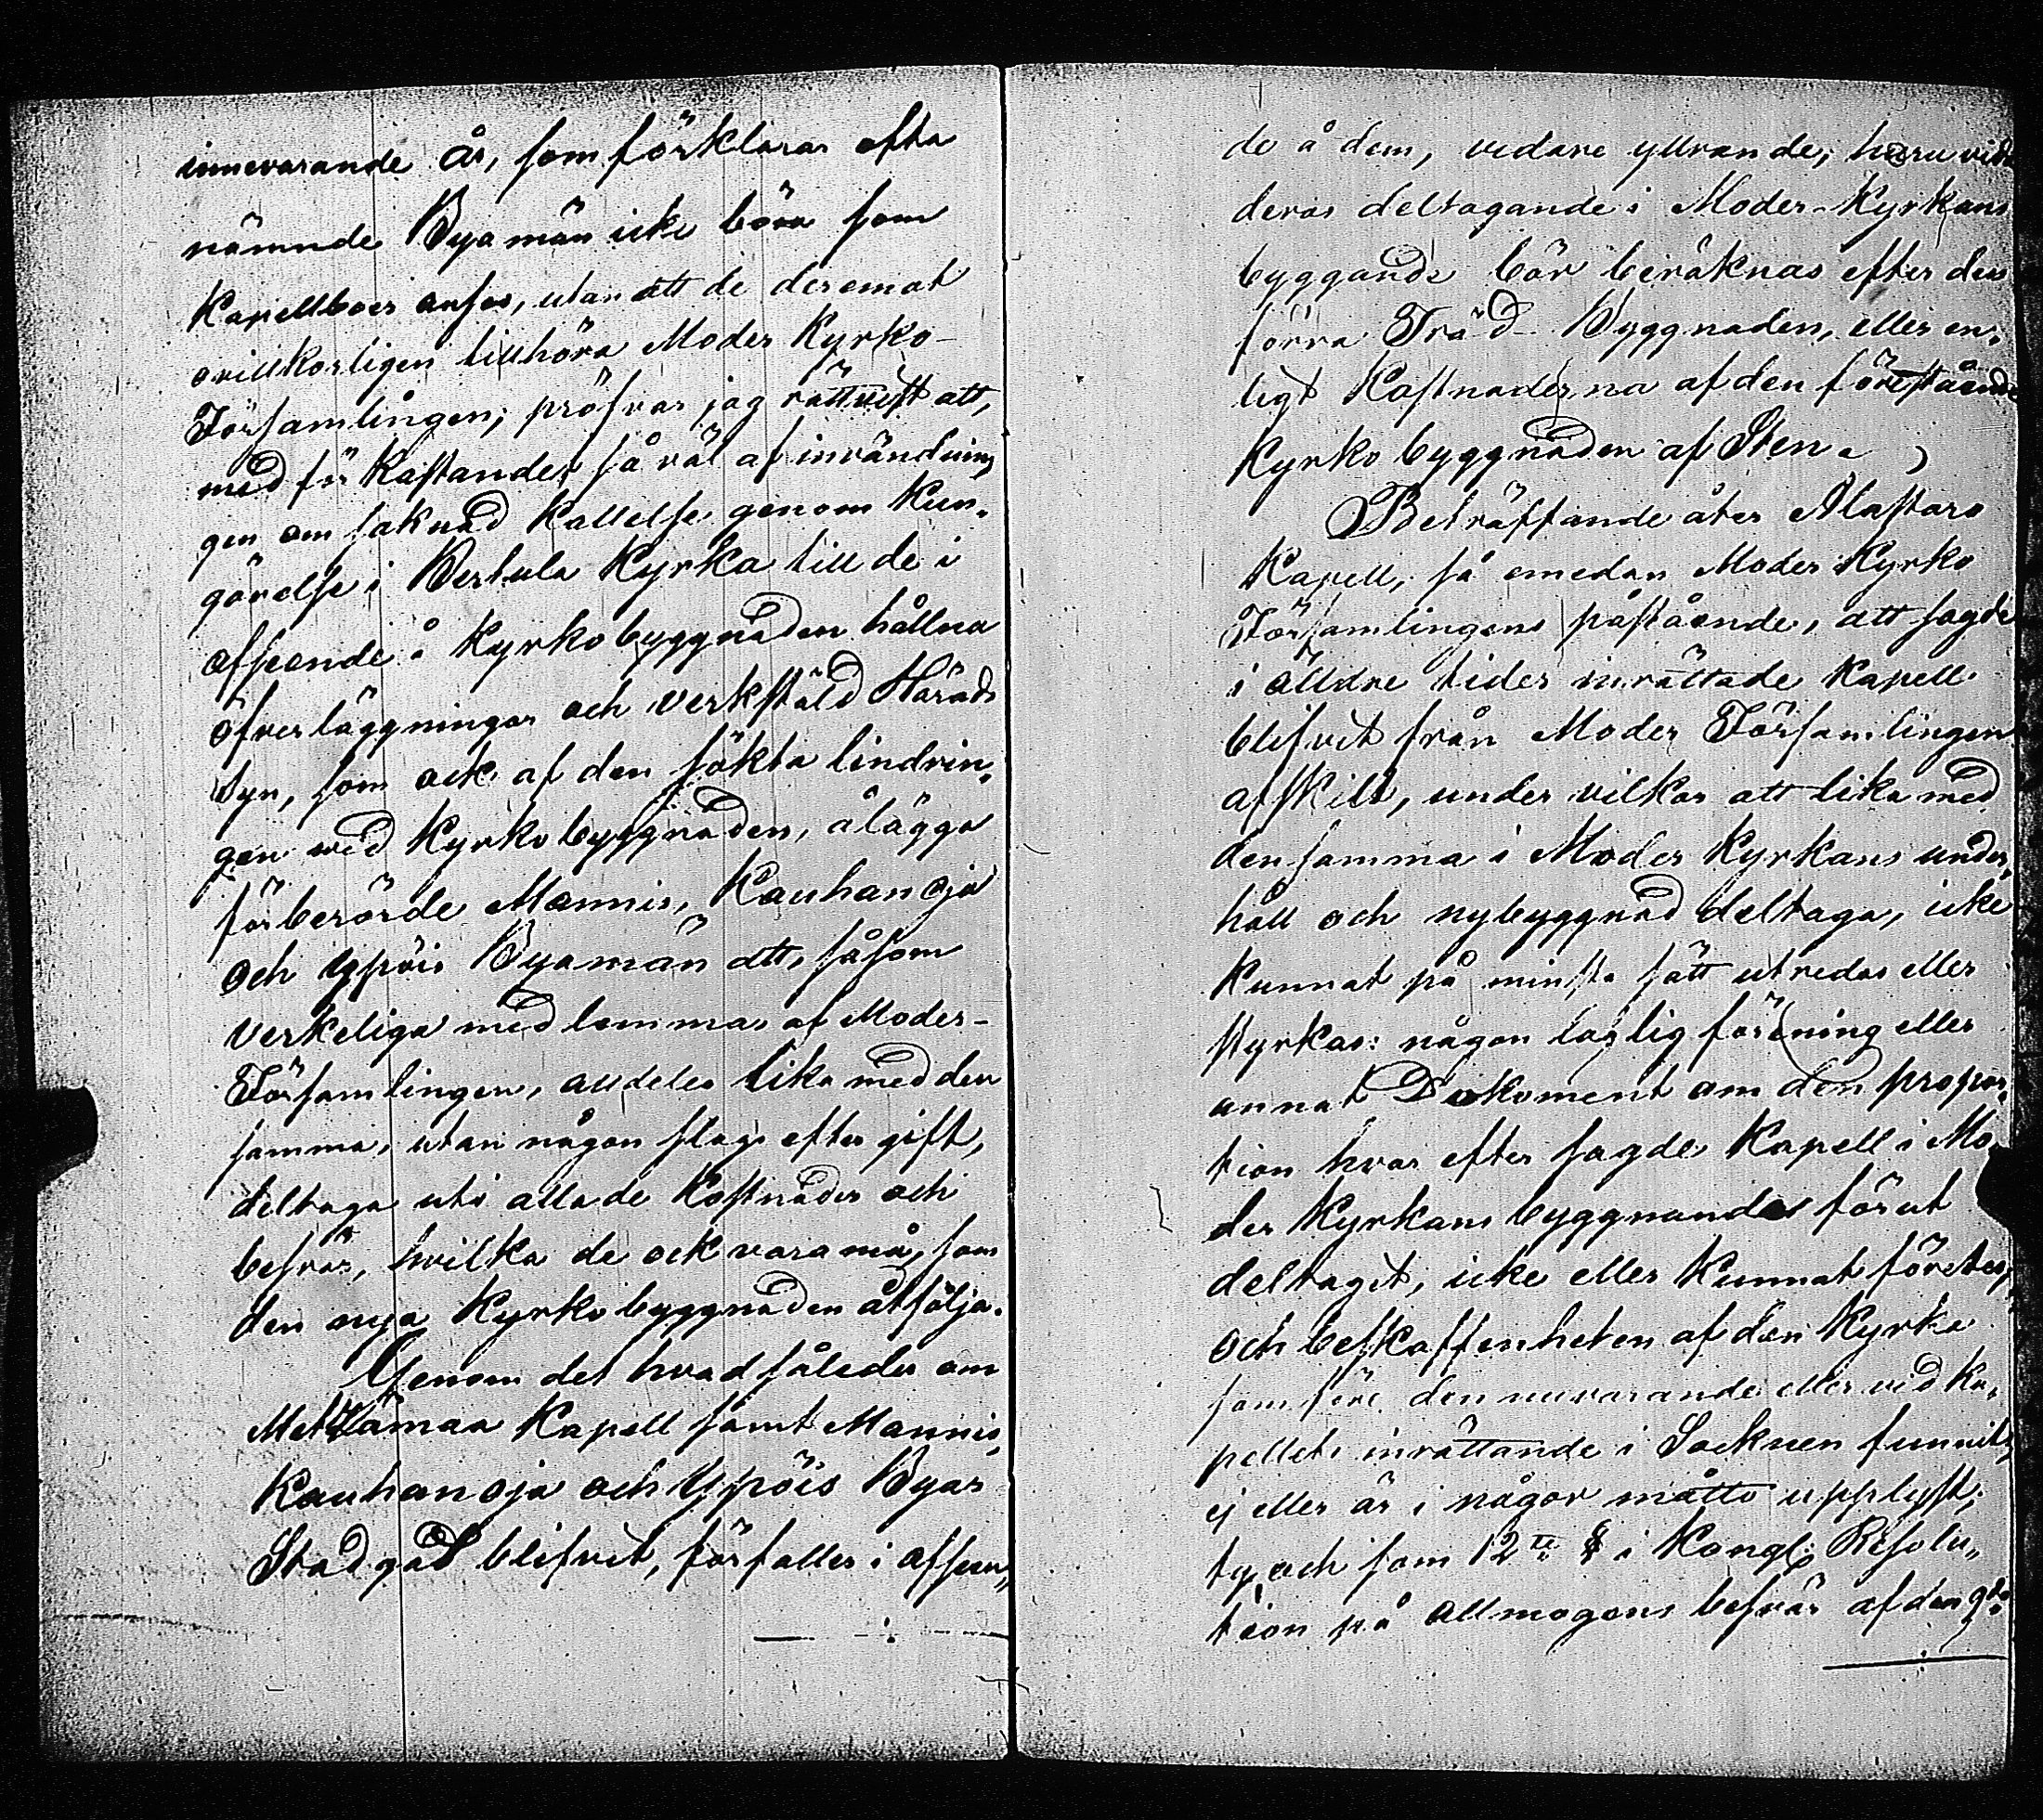 innevarande år, som förklarar ofta
nämnde Byamän icke böra som
Kapellboer anses, utan att de deremot
ovillkorligen tillhöra Moder Kyrko-
Församlingen; pröfvar jag rättvist att,
med förkastandes så väl af invändnin,
gen om saknad Kallelse genom Kun,
görelse i Vertula Kyrka till de i
afseende å Kyrkobyggnaden hållna
öfverläggningar och verkstäld Härads
syn, som ock af den sökta lindrin,
gen wid Kyrkobyggnaden, ålägga
förberörde Mannis, Kauhanoja
och Ypöis Byamän att, såsom
verkeliga medlemmar af Moder-
Församlingen, alldeles lika med den
samma, utan någon slags eftergift,
deltaga uti alla de Kostnader och
besvär, hvilka de ock vara må, som
den nya Kyrkobyggnaden åtfölja.
Genom det hvad således om
Metzämaa Kapell samt Mannis,
Kauhanoja och Ypöis Byar
Stadgad blifvit, förfaller i afseen,,
de å dem, vidare yttrande, huruvida
deras deltagande i Moder-Kyrkans
byggande bör beräknas efter den
förra Träd-Byggnaden, eller en,
ligt Kostnaderna af den förestående
Kyrkobyggnaden af Sten.
Beträffande åter Alastaro
Kapell, så emedan Moder Kyrko
Församlingens påstående, att sagde
i älldre tider inrättade Kapell
blifvit från Moder Församlingen
afskilt, under vilkor att lika med
densamma i Moder Kyrkans under,
håll och nybyggnad deltaga, icke
Kunnat på minsta sätt utredas eller
styrkas: någon laglig förening eller
annat Dokument om den propor,
tion hvarefter sagde Kapell i Mo
der Kyrkans byggnande förut
deltagit, icke eller Kunnat företes,
och beskaffenheten af den Kyrka
som före den nuvarande eller vid Ka,
pellets inrättande i Socknen funnits,
ej eller är i någor måtto upplyst;
ty och som 12te § i Kongl: Resolu,,
tion på Allmogens besvär af den 9de